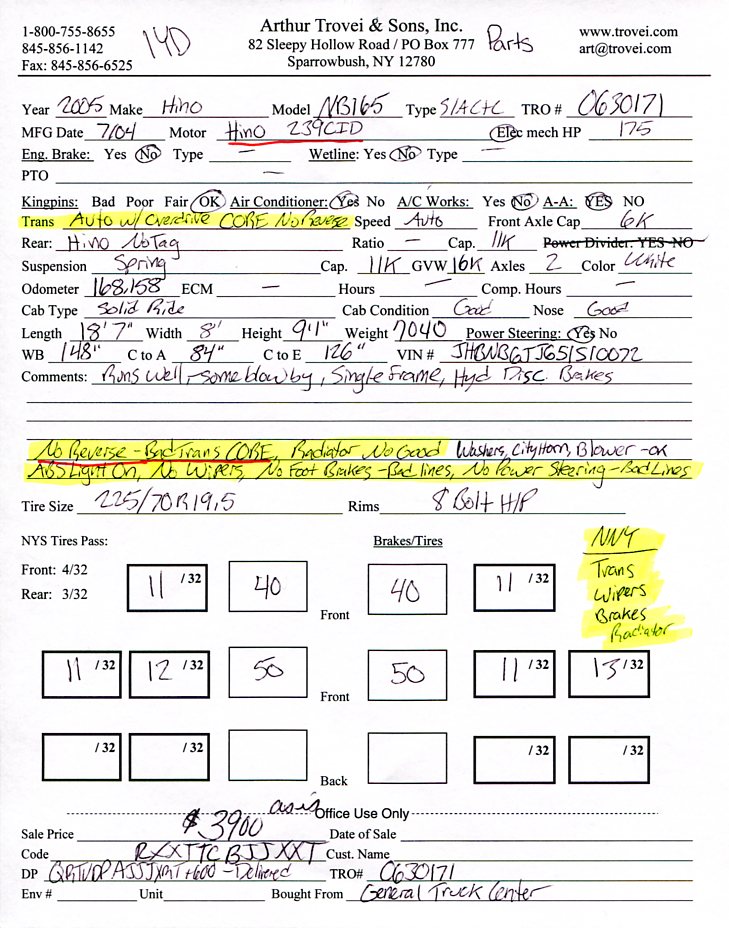 1-800-755-8655
845-856-1142
Fax: 845-856-6525
14D
Arthur Trovei & Sons, Inc.
82 Sleepy Hollow Road / PO Box 777
Sparrowbush, NY 12780
Parts
www.trovei.com
art@trovei.com
Year 2005 Make Hino Model NB165 Type S/A C+C TRO # 0630171
MFG Date 7/04 Motor Hino 239CID Elec mech HP 175
Eng. Brake: Yes No Type — Wetline: Yes No Type —
PTO —
Kingpins: Bad Poor Fair OK Air Conditioner: Yes No A/C Works: Yes No A-A: YES NO
Trans Auto w/ Overdrive CORE No Reverse Speed Auto Front Axle Cap 6K
Rear: Hino No Tag Ratio — Cap. 11K Power Divider: YES NO
Suspension Spring Cap. 11K GVW 16K Axles 2 Color White
Odometer 168,158 ECM — Hours — Comp. Hours —
Cab Type Solid Ride Cab Condition Good Nose Good
Length 18'7" Width 8' Height 9'1" Weight 7040 Power Steering: Yes No
WB 148" C to A 84" C to E 126" VIN # JHBNB6TJ651S10072
Comments: Runs Well, -some blow by, Single Frame, Hyd Disc. Brakes
No Reverse - Bad Trans CORE, Radiator No Good Washers, City Horn, Blower -ok
ABS Light On, No Wipers, No Foot Brakes - Bad lines, No Power Stearing - Bad Lines
Tire Size 225/70R19.5 Rims 8 Bolt H/P
NYS Tires Pass: Brakes/Tires NNY
Front: 4/32
Rear: 3/32
Trans
Wipers
Brakes
Radiator
11 /32 40 Front 40 11 /32
11 /32 12 /32 50 Front 50 11 /32 13 /32
/32 /32 Back /32 /32
Office Use Only
Sale Price $3900 as is Date of Sale
Code RXXTTCBJJXXT Cust. Name
DP QRTVDPASJJXRT +600 - Delivered TRO# 0630171
Env # Unit Bought From General Truck Center